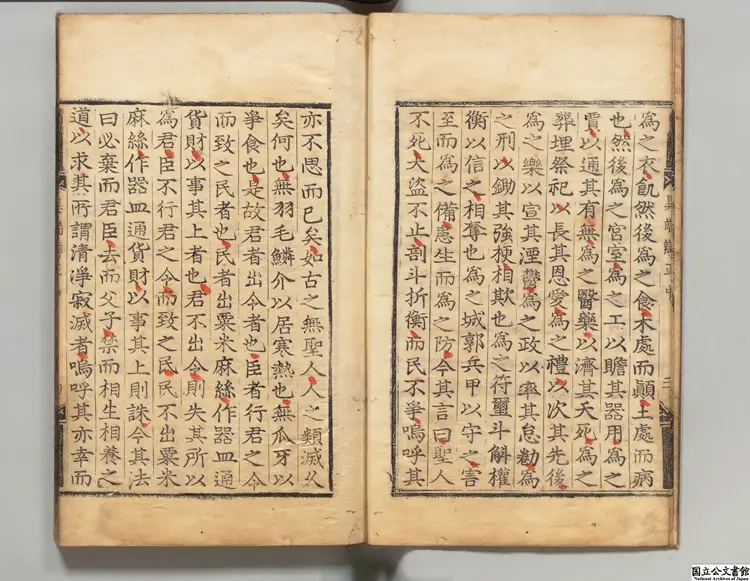 為之衣飢然後為之食木處而顛土處而病
也然後為之宮室為之工以贍其器用為之
賈以通其有無為之醫藥以濟其夭死為之
葬埋祭祀以長其恩愛為之禮以次其先後
為之樂以宣其湮鬱為之政以率其怠勌為
之刑以鋤其強梗相欺也為之符璽斗斛權
衡以信之相奪也為之城郭兵甲以守之害
至而為之備患生而為之防今其言曰聖人
不死大盜不止剖斗折衡而民不爭嗚呼其
亦不思而已矣如古之無聖人人之類滅久
矣何也無羽毛鱗介以居寒熱也無瓜牙以
爭食也是故君者出令者也臣者行君之令
而致之民者也民者出粟米麻絲作器皿通
貨財以事其上者也君不出令則失其所以
為君臣不行君之令而致之民民不出粟米
麻絲作器皿通貨財以事其上則誅今其法
曰必棄而君臣去而父子禁而相生相養之
道以求其所謂清淨寂滅者嗚呼其亦幸而
国立公文書館
National Archives of Japan